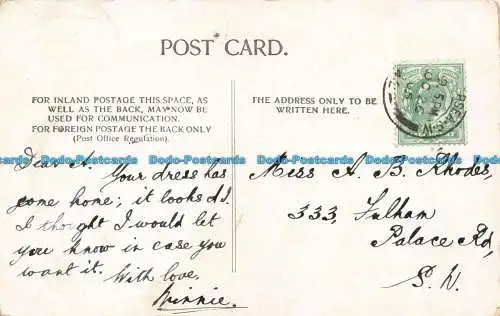 POST CARD.
FOR INLAND POSTAGE THIS SPACE, AS
WELL AS THE BACK, MAY NOW BE
USED FOR COMMUNICATION.
FOR FOREIGN POSTAGE THE BACK ONLY
(Post Office Regulation).
THE ADDRESS ONLY TO BE
WRITTEN HERE.
Dear A. Your dress has
come home; it looks A1.
I thought I would let
you know in case you
want it. With love.
Minnie.
Miss A. B. Rhodes,
333 Fulham
Palace Rd,
S.W.